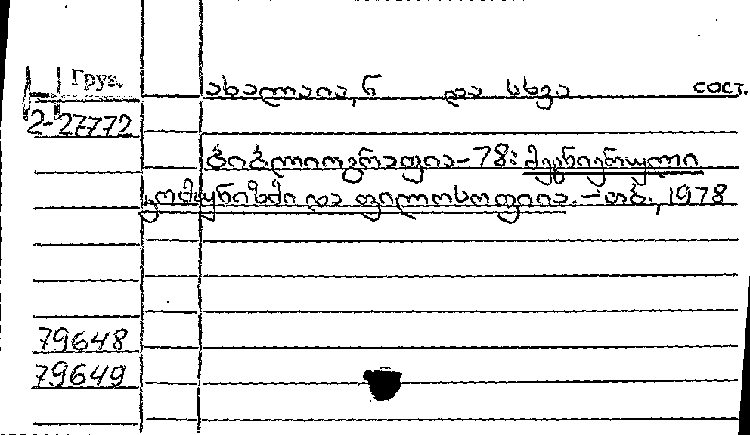 Груз.
ახალაია, ნ და სხვა сост.
2-27772
ბიბლიოგრაფია-78: მეცნიერული
კომუნიზმი და ფილოსოფია. - თბ., 1978
79648
79649